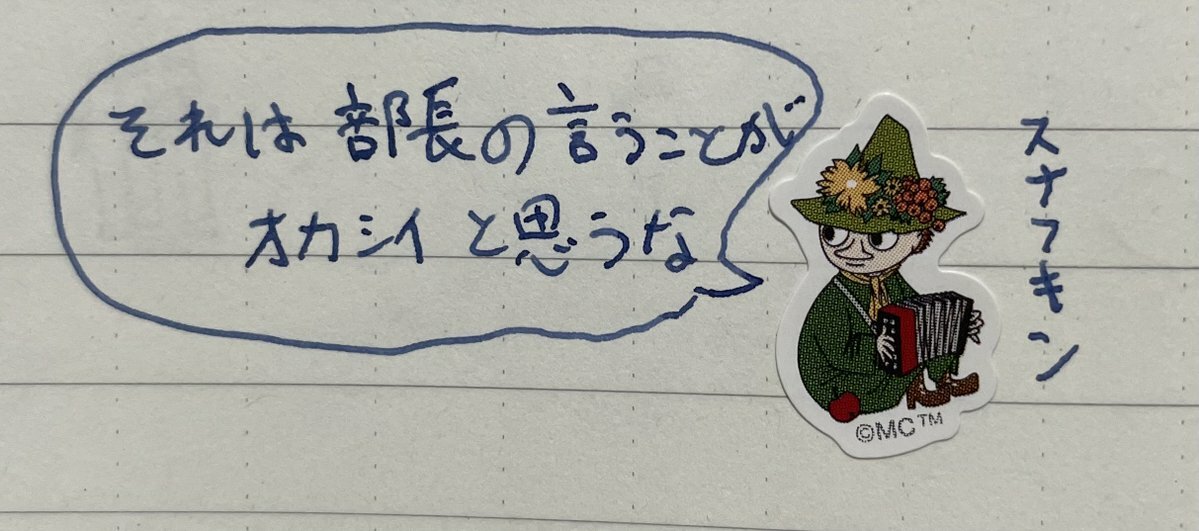 それは部長の言うことが
オカシイと思うな
スナフキン
©MC™